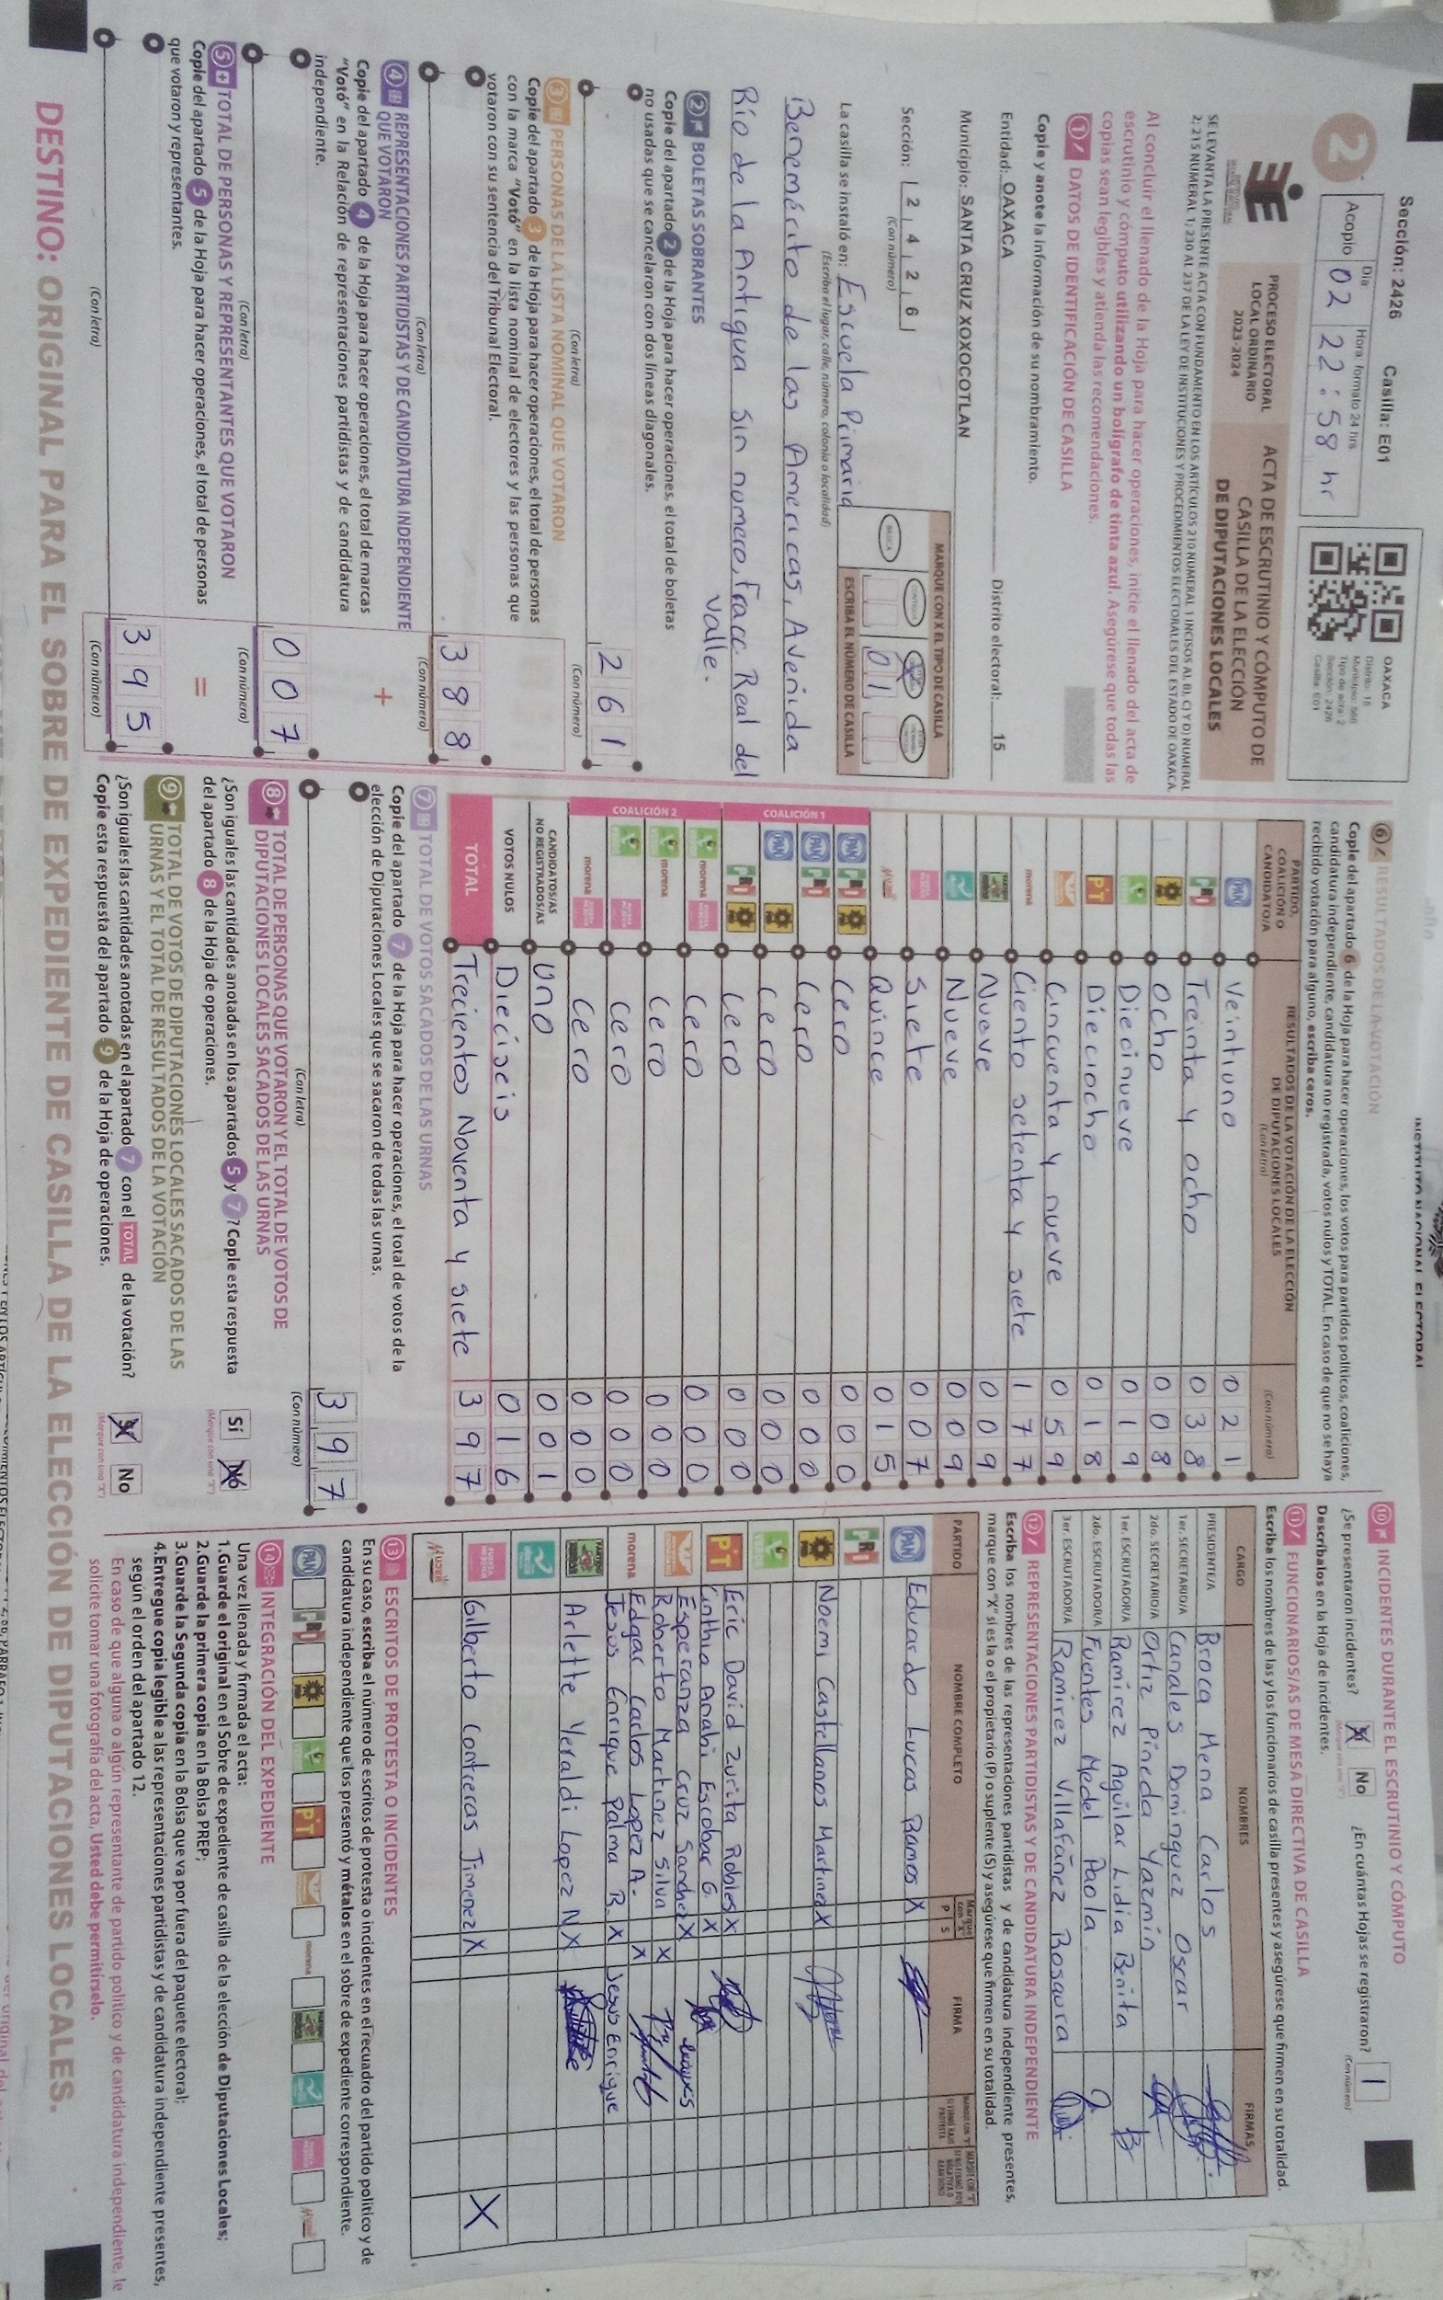 Sección: 2426 Casilla: E01
2
Acopio
Día
02
Hora: formato 24 hrs
22:58 hr
OAXACA
PROCESO ELECTORAL
LOCAL ORDINARIO
2023-2024
ACTA DE ESCRUTINIO Y CÓMPUTO DE
CASILLA DE LA ELECCIÓN
DE DIPUTACIONES LOCALES
SE LEVANTA LA PRESENTE ACTA CON FUNDAMENTO EN LOS ARTÍCULOS 210 NUMERAL 1 INCISOS A), B), C) Y D) NUMERAL
2; 215 NUMERAL 1; 230 AL 237 DE LA LEY DE INSTITUCIONES Y PROCEDIMIENTOS ELECTORALES DEL ESTADO DE OAXACA.
Al concluir el llenado de la Hoja para hacer operaciones, inicie el llenado del acta de
escrutinio y cómputo utilizando un bolígrafo de tinta azul. Asegúrese que todas las
copias sean legibles y atienda las recomendaciones.
1 DATOS DE IDENTIFICACIÓN DE CASILLA
Copie y anote la información de su nombramiento.
Entidad: OAXACA Distrito electoral: 15
Municipio: SANTA CRUZ XOXOCOTLAN
Sección: 2 4 2 6
(Con número)
MARQUE CON X EL TIPO DE CASILLA
01
ESCRIBA EL NÚMERO DE CASILLA
La casilla se instaló en: Escuela Primaria
(Escriba el lugar, calle, número, colonia o localidad)
Benemérito de las Americas, Avenida
Río de la Antigua sin numero, Fracc. Real del
valle.
2 BOLETAS SOBRANTES
Copie del apartado 2 de la Hoja para hacer operaciones, el total de boletas
no usadas que se cancelaron con dos líneas diagonales.
261
(Con letra) (Con número)
3 PERSONAS DE LA LISTA NOMINAL QUE VOTARON
Copie del apartado 3 de la Hoja para hacer operaciones, el total de personas
con la marca "Votó" en la lista nominal de electores y las personas que
votaron con su sentencia del Tribunal Electoral.
388
(Con letra) (Con número)
4 REPRESENTACIONES PARTIDISTAS Y DE CANDIDATURA INDEPENDIENTE
QUE VOTARON
+
Copie del apartado 4 de la Hoja para hacer operaciones, el total de marcas
"Votó" en la Relación de representaciones partidistas y de candidatura
independiente.
007
(Con letra) (Con número)
5 TOTAL DE PERSONAS Y REPRESENTANTES QUE VOTARON
=
Copie del apartado 5 de la Hoja para hacer operaciones, el total de personas
que votaron y representantes.
395
(Con letra) (Con número)
6 RESULTADOS DE LA VOTACIÓN
Copie del apartado 6 de la Hoja para hacer operaciones, los votos para partidos políticos, coaliciones,
candidatura independiente, candidatura no registrada, votos nulos y TOTAL. En caso de que no se haya
recibido votación para alguno, escriba ceros.
PARTIDO,
COALICIÓN O
CANDIDATO/A
RESULTADOS DE LA VOTACIÓN DE LA ELECCIÓN
DE DIPUTACIONES LOCALES
(Con letra) (Con número)
PAN Veintiuno 021
PRI Treinta y ocho 038
Ocho 008
Diecinueve 019
PT Dieciocho 018
Cincuenta y nueve 059
morena Ciento setenta y siete 177
Nueve 009
Nueve 009
Siete 007
MUJER Quince 015
COALICIÓN 1
PAN PRI Cero 000
PAN PRI Cero 000
PAN Cero 000
PRI Cero 000
COALICIÓN 2
morena Cero 000
morena Cero 000
Cero 000
morena Cero 000
CANDIDATOS/AS
NO REGISTRADOS/AS
Uno 001
VOTOS NULOS Dieciseis 016
TOTAL Trecientos Noventa y siete 397
7 TOTAL DE VOTOS SACADOS DE LAS URNAS
Copie del apartado 7 de la Hoja para hacer operaciones, el total de votos de la
elección de Diputaciones Locales que se sacaron de todas las urnas.
397
(Con letra) (Con número)
8 TOTAL DE PERSONAS QUE VOTARON Y EL TOTAL DE VOTOS DE
DIPUTACIONES LOCALES SACADOS DE LAS URNAS
¿Son iguales las cantidades anotadas en los apartados 5 y 7? Copie esta respuesta
del apartado 8 de la Hoja de operaciones.
Sí No
(Marque con una "X")
9 TOTAL DE VOTOS DE DIPUTACIONES LOCALES SACADOS DE LAS
URNAS Y EL TOTAL DE RESULTADOS DE LA VOTACIÓN
¿Son iguales las cantidades anotadas en el apartado 7 con el TOTAL de la votación?
Copie esta respuesta del apartado 9 de la Hoja de operaciones.
Sí No
(Marque con una "X")
10 INCIDENTES DURANTE EL ESCRUTINIO Y CÓMPUTO
¿Se presentaron incidentes? Sí No ¿En cuántas Hojas se registraron? 1
(Con número)
Descríbalos en la Hoja de incidentes.
11 FUNCIONARIOS/AS DE MESA DIRECTIVA DE CASILLA
Escriba los nombres de las y los funcionarios de casilla presentes y asegúrese que firmen en su totalidad.
CARGO NOMBRES FIRMAS
PRESIDENTE/A Broca Mena Carlos
1er. SECRETARIO/A Canales Dominguez Oscar
2do. SECRETARIO/A Ortiz Pineda Yazmín
1er. ESCRUTADOR/A Ramírez Aguilar Lidia Benita
2do. ESCRUTADOR/A Fuentes Medel Paola
3er. ESCRUTADOR/A Ramirez Villafañez Rosaura
12 REPRESENTACIONES PARTIDISTAS Y DE CANDIDATURA INDEPENDIENTE
Escriba los nombres de las representaciones partidistas y de candidatura independiente presentes,
marque con "X" si es la o el propietario (P) o suplente (S) y asegúrese que firmen en su totalidad.
PARTIDO NOMBRE COMPLETO P S FIRMA
PAN Eduardo Lucas Ramos X
PRI
Noemi Castellanos Martinez X
PT Eric David Zurita Robles X
Cinthia Anahi Escobar G. X
Esperanza Cruz Sanchez X
Roberto Martinez Silva X
morena Edgar Carlos Lopez A. X
Jesus Enrique Palma R. X Jesus Enrique
Arlette Yeraldi Lopez N X
Gilberto Contreras Jimenez X X
MUJER
13 ESCRITOS DE PROTESTA O INCIDENTES
En su caso, escriba el número de escritos de protesta o incidentes en el recuadro del partido político y de
candidatura independiente que los presentó y métalos en el sobre de expediente correspondiente.
PAN PRI PT morena
14 INTEGRACIÓN DEL EXPEDIENTE
Una vez llenada y firmada el acta:
1.Guarde el original en el Sobre de expediente de casilla de la elección de Diputaciones Locales;
2.Guarde la primera copia en la Bolsa PREP;
3.Guarde la Segunda copia en la Bolsa que va por fuera del paquete electoral;
4.Entregue copia legible a las representaciones partidistas y de candidatura independiente presentes,
según el orden del apartado 12.
En caso de que alguna o algún representante de partido político y de candidatura independiente, le
solicite tomar una fotografía del acta, Usted debe permitírselo.
DESTINO: ORIGINAL PARA EL SOBRE DE EXPEDIENTE DE CASILLA DE LA ELECCIÓN DE DIPUTACIONES LOCALES.